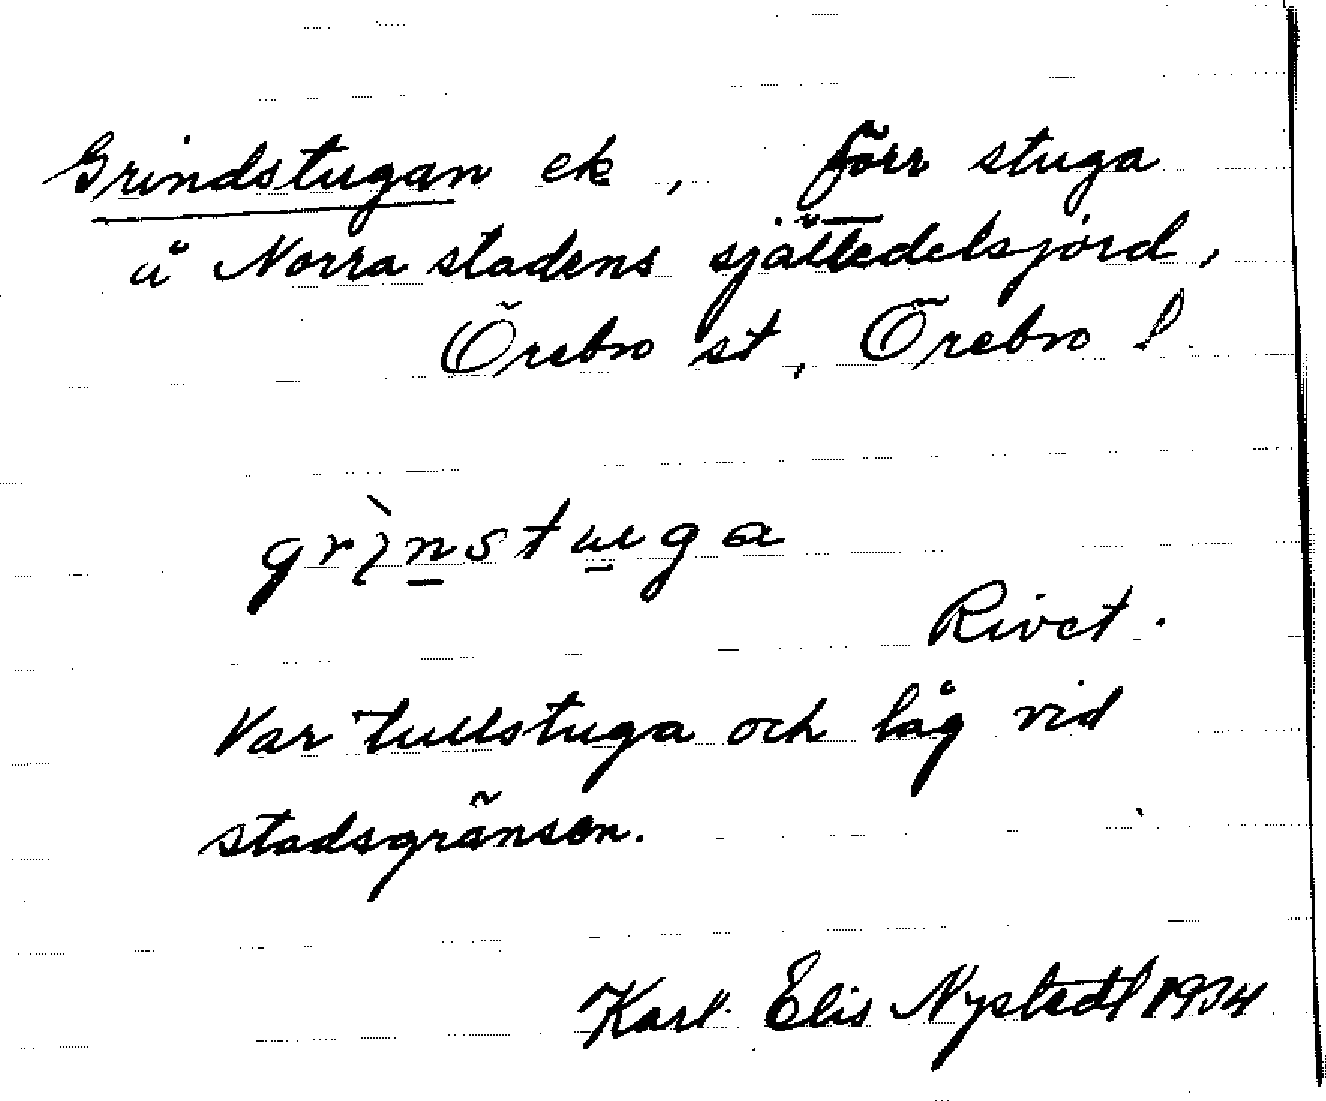 Grindstugan ek, förr stuga
å Norra stadens sjättedelsjord,
Örebro st, Örebro l
grı̀nstuga
Rivet.
Var tullstuga och låg vid
stadsgränsen.
Karl Elis Nystedt 1934